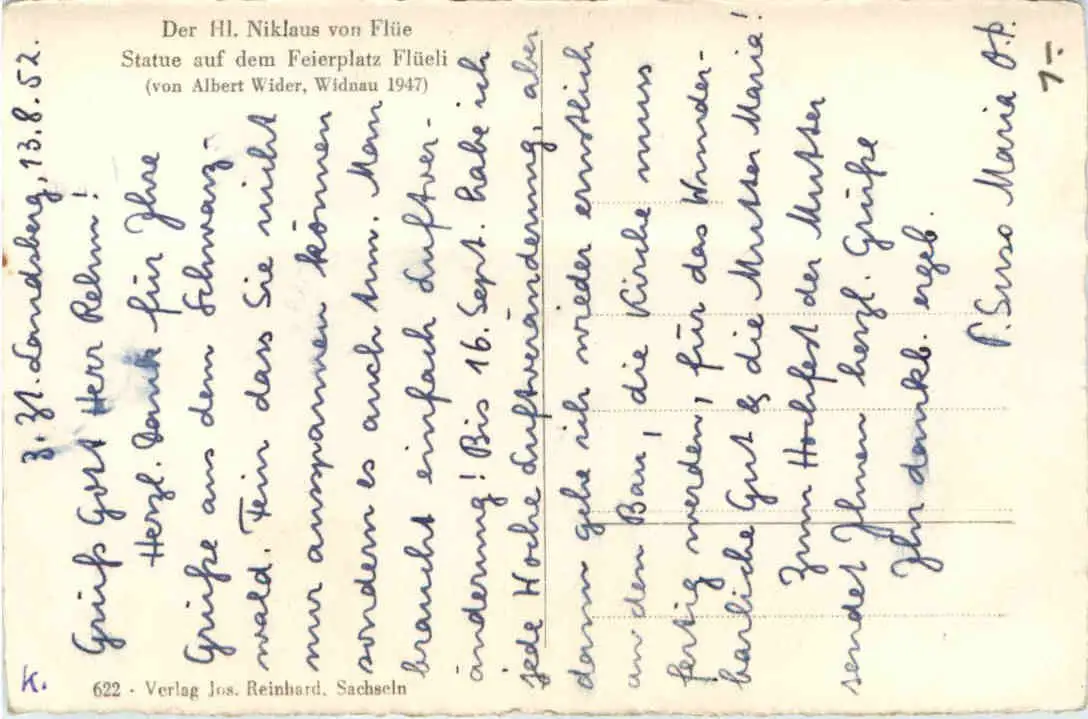 Der Hl. Niklaus von Flüe
Statue auf dem Feierplatz Flüeli
(von Albert Wider, Widnau 1947)
z. Zt. Landsberg, 13.8.52.
Grüß Gott Herr Rehm!
Herzl. Dank für Ihre
Grüße aus dem Schwarz-
wald. Fein dass Sie nicht
nur ausspannen können
sondern es auch tun. Man
braucht einfach Luftver-
änderung! Bis 16. Sept. habe ich
jede Woche Luftveränderung, aber
dann gehe ich wieder ernstlich
an den Bau, die Kirche muss
fertig werden, für das Wunder-
barliche Gut & die Mutter Maria!
Zum Hochfest der Mutter
sendet Ihnen herzl. Grüße
Ihr dankb. ergeb.
P. Suso Maria O.P.
1-
K.
622 - Verlag Jos. Reinhard, Sachseln